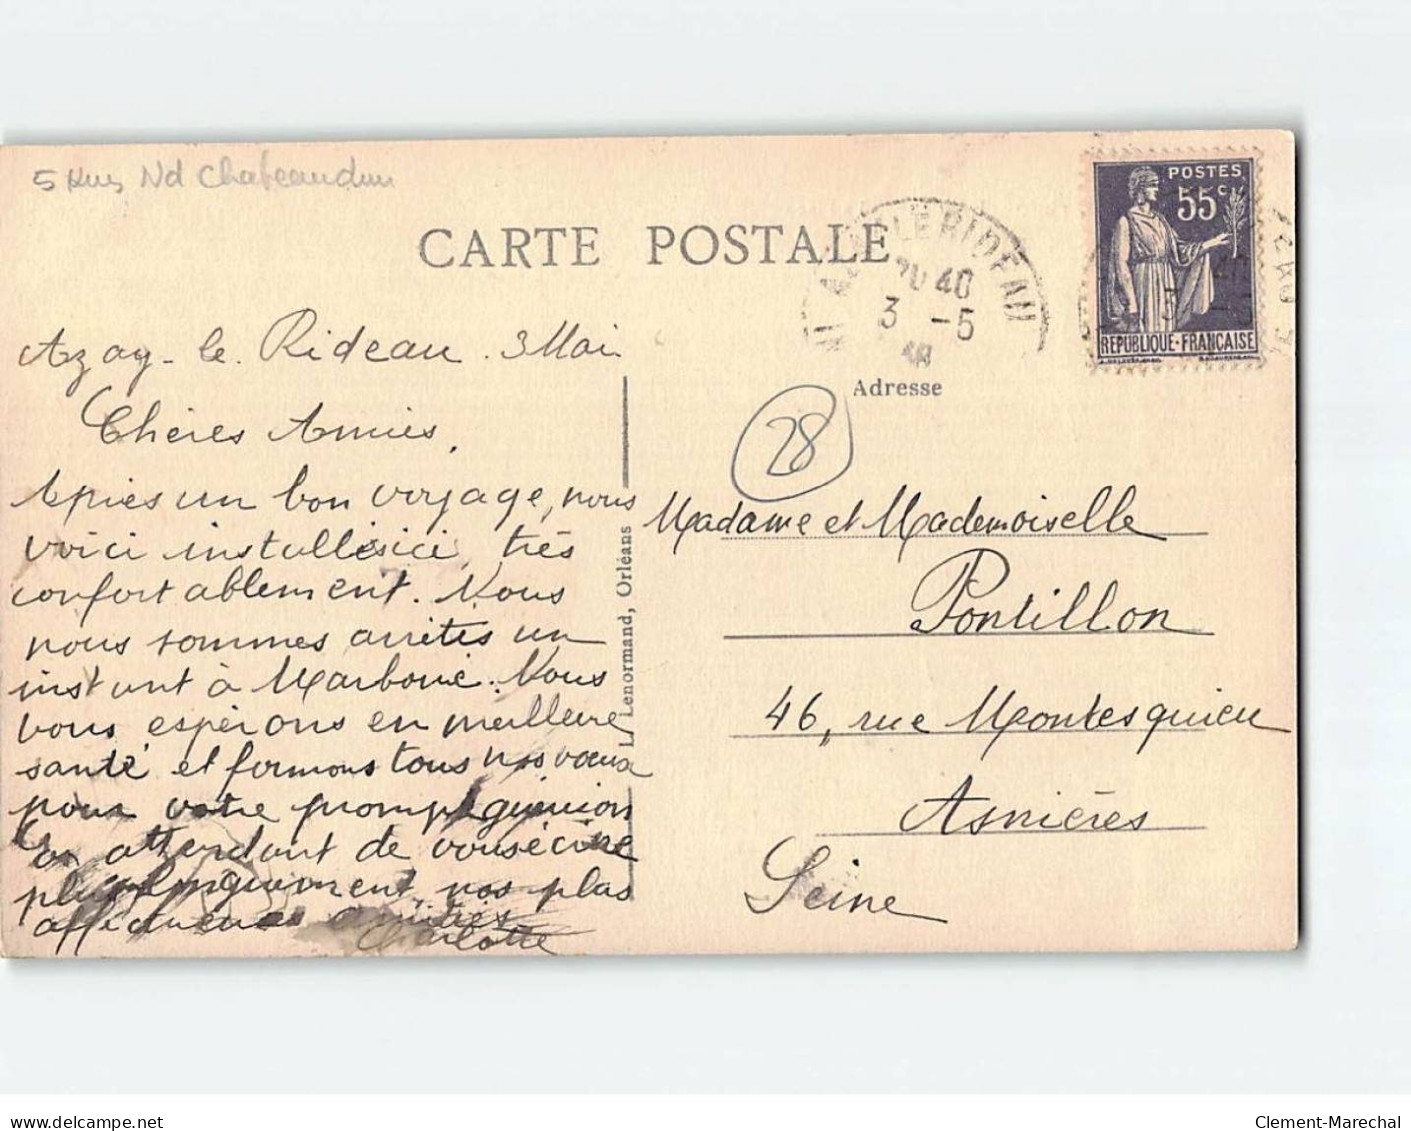 5 Kms Nd Chateaudun
CARTE POSTALE
POSTES
55c
REPUBLIQUE·FRANÇAISE
AZAY LE RIDEAU
40
3 -5
Adresse
28
Azay-le-Rideau. 3 Mai
Chères Amies,
Après un bon voyage, nous
voici installés ici, très
confortablement. Nous
nous sommes arrêtés un
instant à Marboué. Nous
vous espérons en meilleure
santé et formons tous nos vœux
pour votre prompte guérison
En attendant de vous écrire
plus longuement, nos plus
affectueuses amitiés
Charlotte
L. Lenormand, Orléans
Madame et Mademoiselle
Pontillon
46, rue Montesquieu
Asnières
Seine
delcampe.net
Clement-Marechal